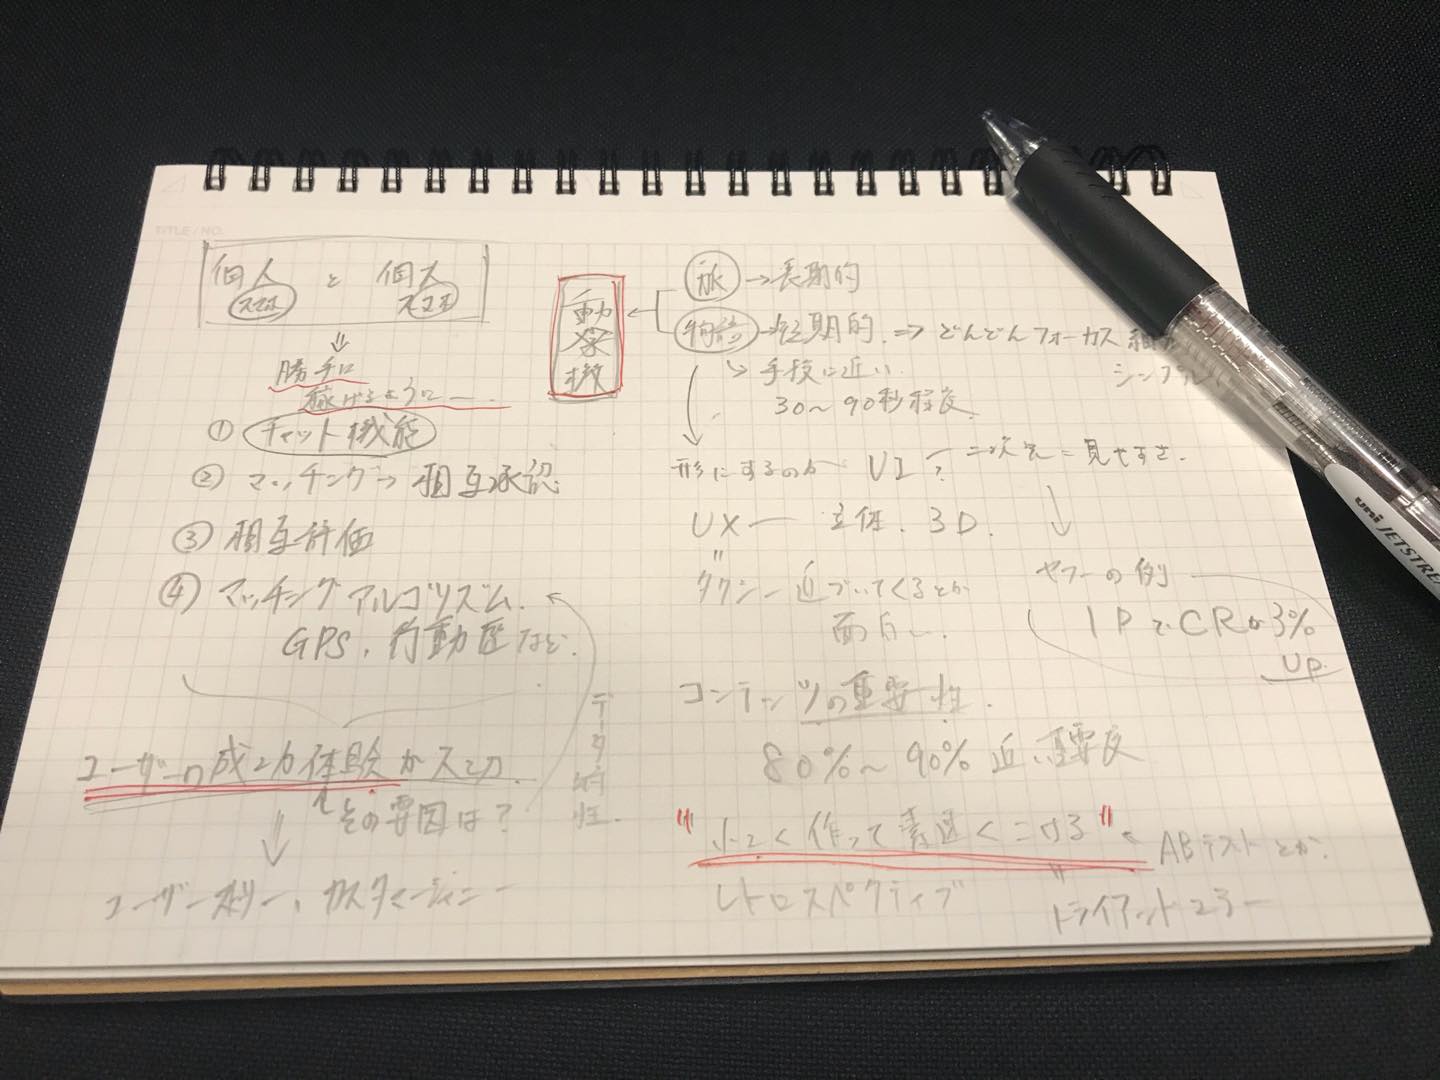 TITLE / NO.
個人 と 個人
スマホ スマホ
⇓
勝手に
稼げるように
① チャット機能
② マッチング→相互承認
③ 相互評価
④ マッチングアルゴリズム.
GPS、行動歴など.
データ
ユーザーの成功体験が大切.
その要因は?
ユーザーストーリー、カスタマージャーニー
動機
旅 →長期的
物語→短期的. ⇒ どんどんフォーカス
シンプル
手段に近い.
30〜90秒程度.
形にするのが UI ? 二次元 = 見せ方.
UX ー 立体. 3D.
タクシー近づいてくるとか
面白い.
ヤフーの例
1PでCRが3%
UP.
コンテンツの重要性.
80%〜90%近い重要度
"小さく作って素速くこける" ← ABテストとか.
レトロスペクティブ
トライアンドエラー
uni JETSTRE